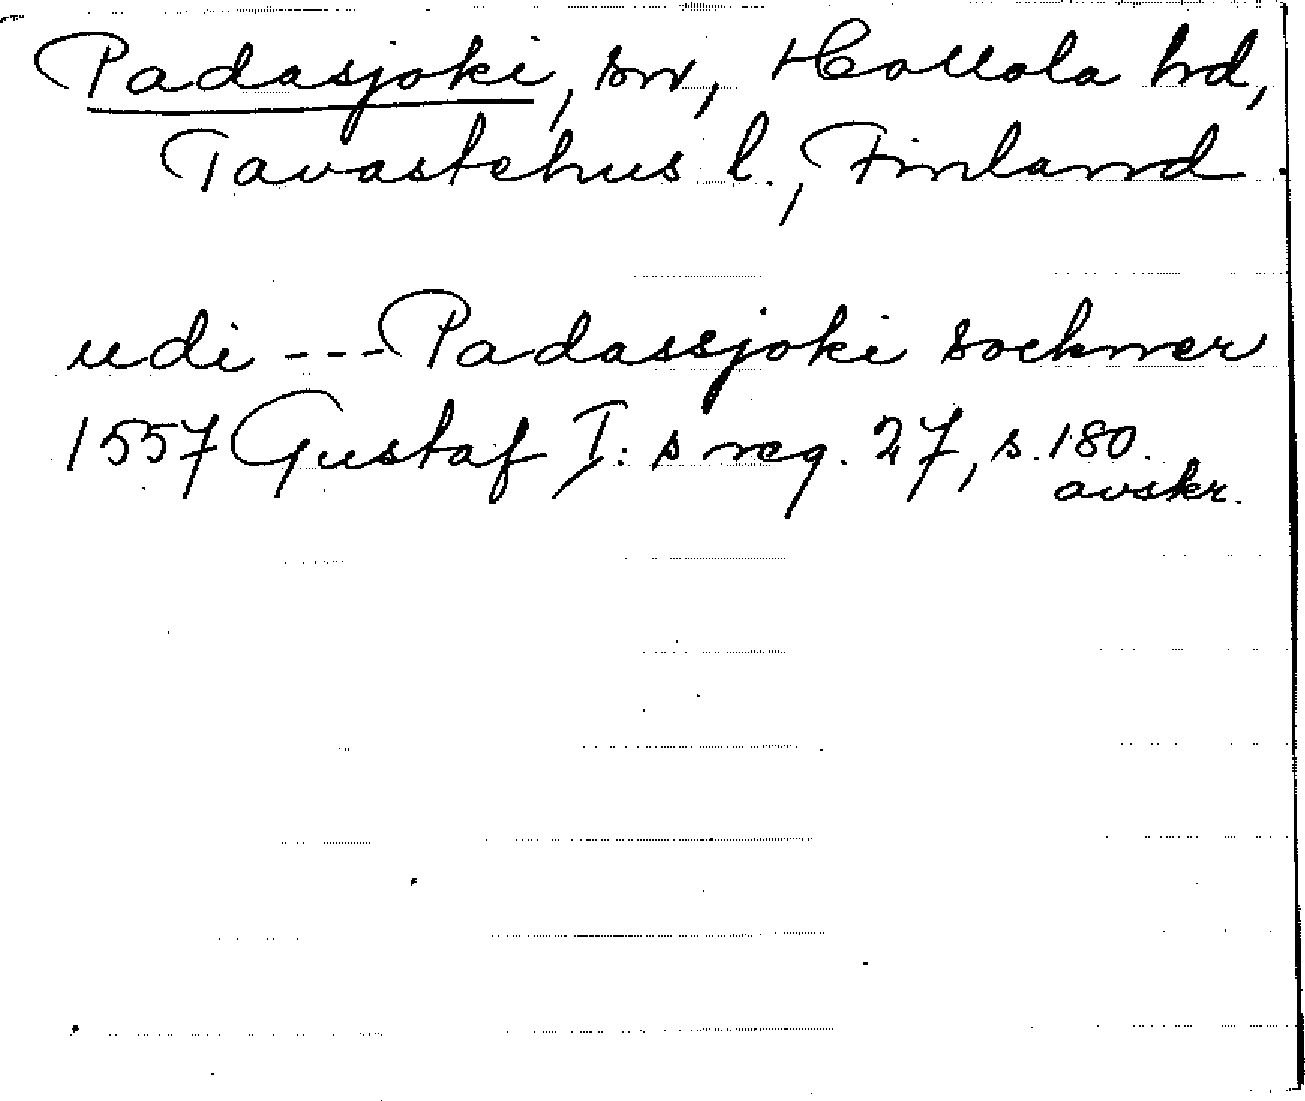 Padasjoki, sn, Hollola hd,
Tavastehus l., Finland.
udi --- Padassjoki sockner
1557 Gustaf I:s reg. 27, s. 180.
avskr.